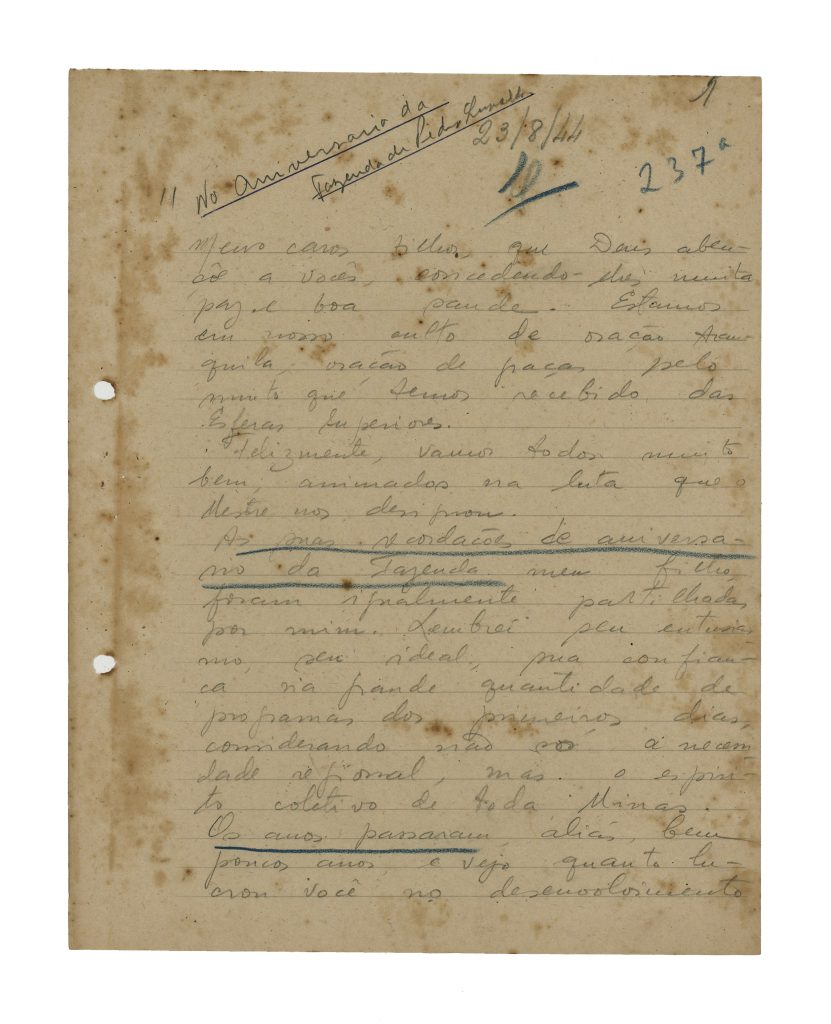 1
No aniversario da
Fazenda de Pedro Leopoldo
23/8/44
11
237a
Meus caros filhos, que Deus aben-
çôe a vocês, concedendo-lhes muita
paz e boa saude. Estamos
em nosso culto de oração tran-
quila, oração de graças pelo
muito que temos recebido das
Esferas Superiores.
Felizmente, vamos todos muito
bem, animados na luta que o
Mestre nos designou.
As suas recordações de aniversa-
rio da Fazenda meu filho,
foram igualmente partilhadas
por mim. Lembrei seu entusias
mo, seu ideal, sua confian-
ça na grande quantidade de
programas dos primeiros dias,
considerando não só a necessi
dade regional, mas o espiri-
to coletivo de toda Minas.
Os anos passaram, aliás, bem
poucos anos, e vejo quanto lu-
crou você no desenvolvimento